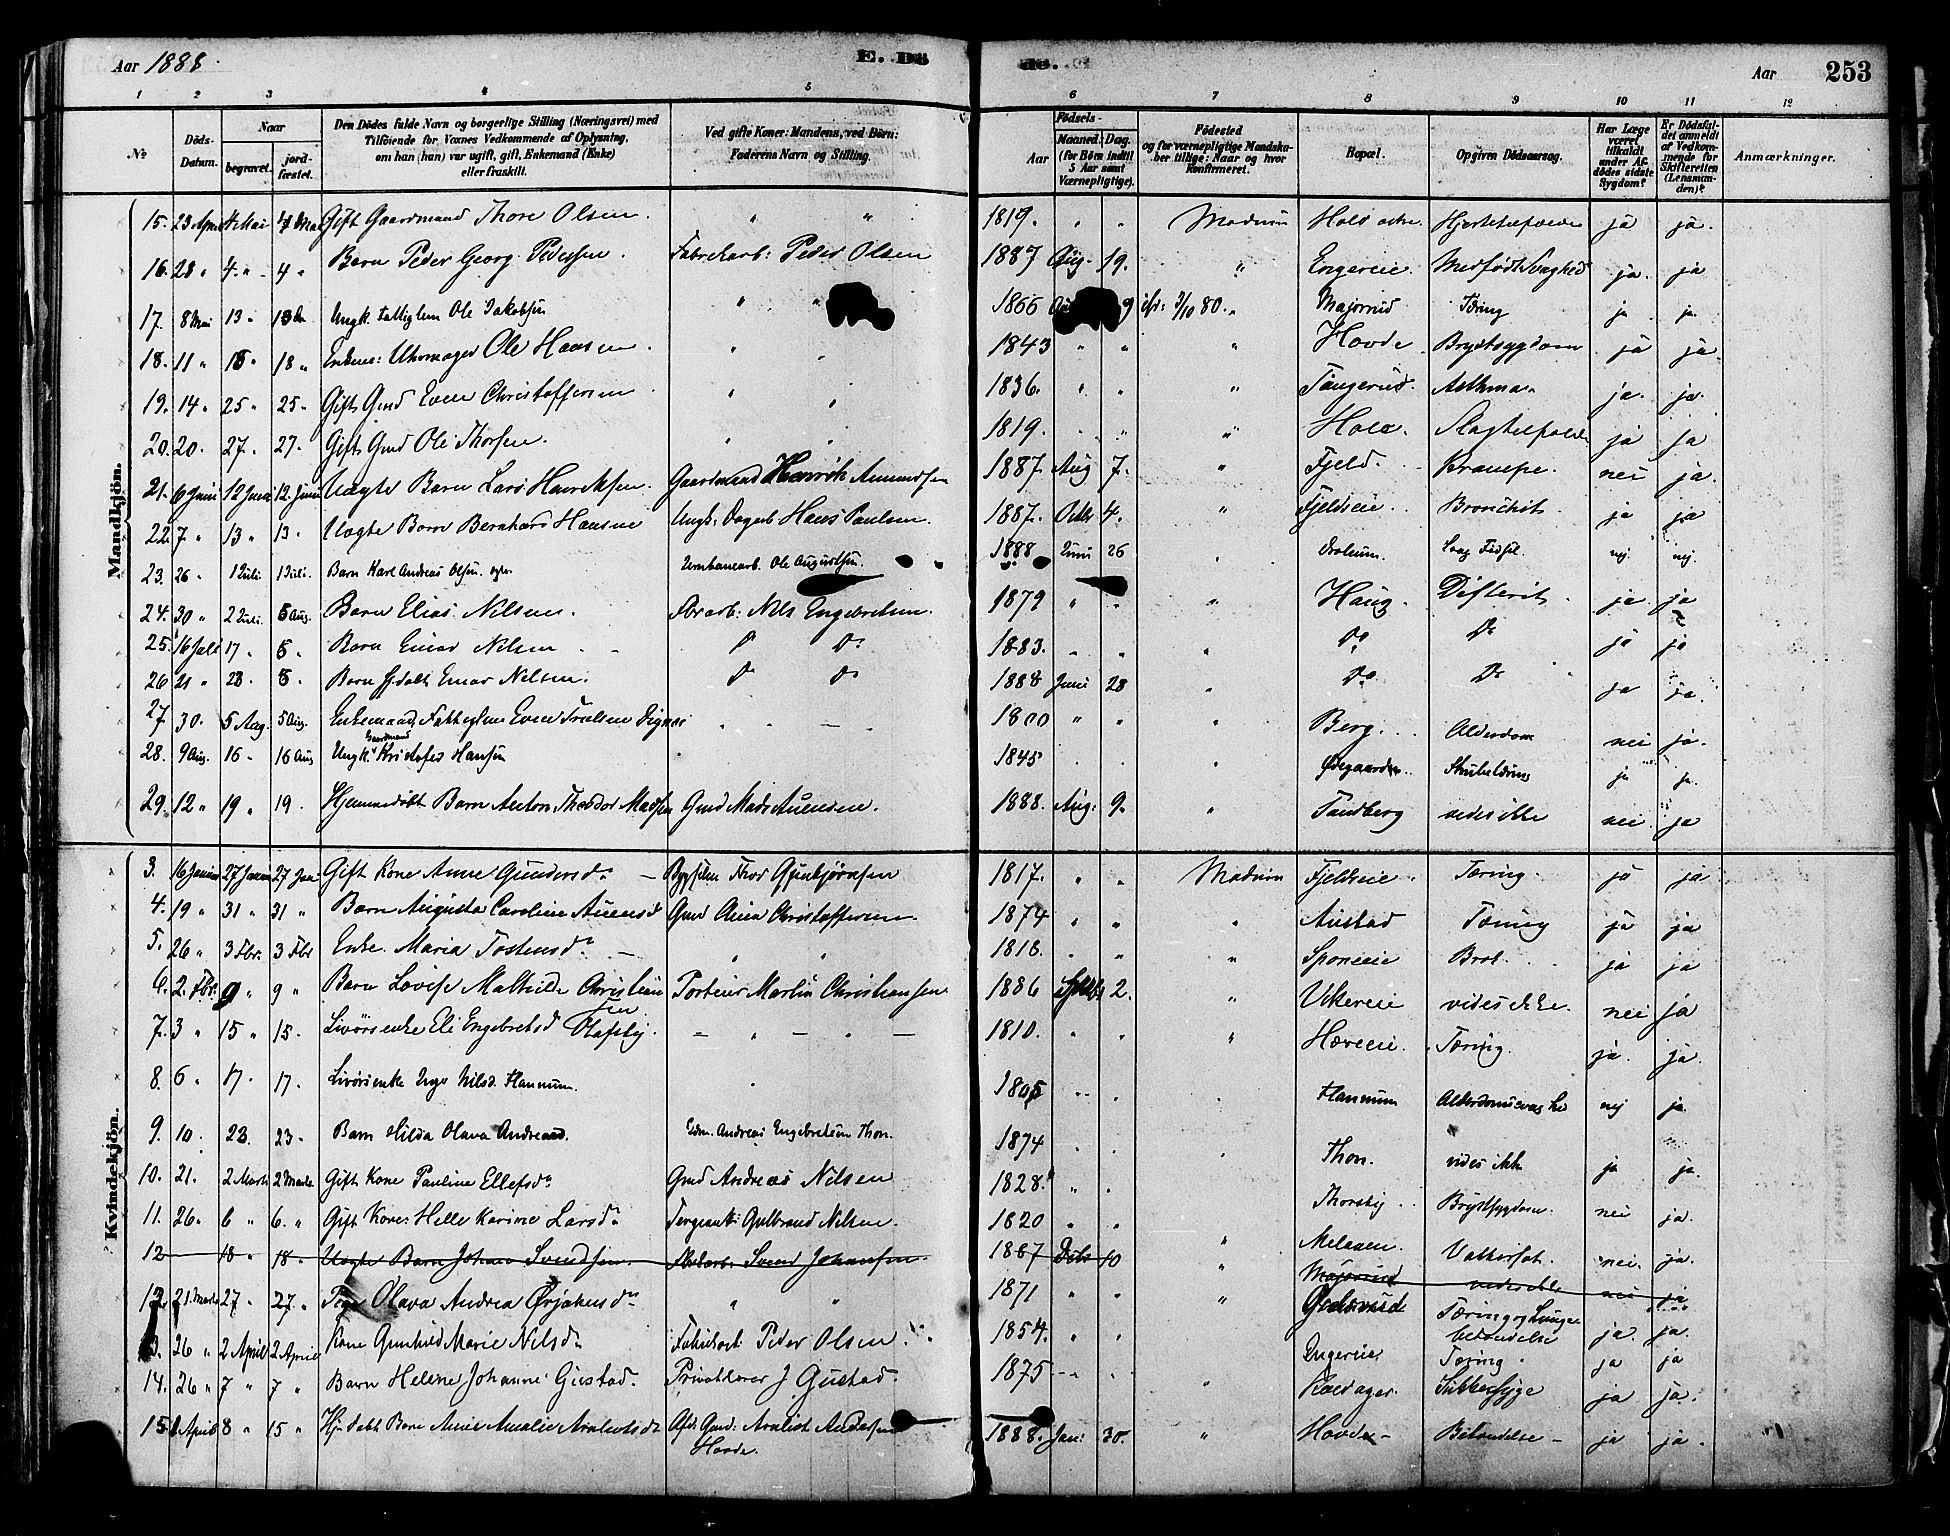 Aar 1888. E. Dö
de. Aar 253
1 2 3 4 5 6 7 8 9 10 11 12
No. Döds-Datum. Naar begravet. jordfæstet. Den Dödes fulde Navn og borgerlige Stilling (Næringsvei) med Tilföiende for Voxnes Vedkommende af Oplysning, om han (hun) var ugift, gift, Enkemand (Enke) eller fraskilt. Ved gifte Koner: Mandens, ved Börn: Faderens Navn og Stilling. Födsels- Aar Maaned. Dag. (for Börn indtil 5 Aar samt Værnepligtige). Födested og for værnepligtige Mandskaber tillige: Naar og hvor konfirmeret. Bopæl. Opgiven Dödsaarsag. Har Læge været tilkaldt under Afdödes sidste Sygdom? Er Dödsfaldet anmeldt af Vedkommende for Skifteretten (Lensmanden)? Anmærkninger.
Mandkjön.
15. 23 April 4 Mai 4 Mai Gift Gaardmand Thore Olsen. " " 1819. " " Modum Hole Hjertetilfælde ja ja.
16. 28 " 4. " 4 " Barn Peder Georg Pedersen. Fabrikarb: Peder Olsen 1887 Aug. 19. " Engereie. Medfødt Svaghed ja. ja
17. 8 Mai 13 " 13 Ungk. Fattiglem Ole Jakobsen " " 1866 9 3/10 80. " Majorrud Tæring ja ja.
18. 11 " 18 " Enkem: Uhrmager Ole Hansen. " " 1843 " " " Hovde. Brystsygdom ja ja.
19. 14 " 25 " 25 " Gift Gmd Even Christoffersen " " 1836. " " " Tangerud. Asthma. ja. ja.
20. 20. 27. " 27. Gift Gmd Ole Thorsen. " " 1819. " " " Hole. Slagtilfælde ja ja
21. 6 Juni 12 Juni 12. Juni Uægte Barn Lars Henriksen. Gaardmand Henrik Amundsen 1887. Aug 7. " Fjeld. Krampe. nei ja.
22. 7 " 13 " 13. Uægte Barn Bernhard Hansen Ungk: Dagarb Hans Paulsen. 1887. Octb 4. " Fjeldseie. Bronchit. ja ja
23. 26 " 1 Juli. 1 Juli. Barn Karl Andreas Olsen. Jernbanearb. Ole Augustsen. 1888 Juni 26 " Drolsum. nej nej.
24. 30 " 2 Juli. 5 Aug. Barn Elias Nilsen. Fbrarb: Nils Engebretsen. 1879 " " " Haug. Difterit. ja ja
25. 16 Juli 17 " 5 " Barn Einar Nilsen. Do Do 1883. " " " Do Do ja ja
26 21 " 23. " 5. Barn hj. døbt Einar Nilsen. Do Do 1888 Juni 28 " Do Do ja ja.
27 30. 5 Aug. 5 Aug. Enkemand, Fattiglem Even Trulsen Dignæs " — 1800 " " " Berg. Alderdom nei ja.
28. 9 Aug. 16 " 16 Aug Ungk. Gaardmand Kristofer Hansen 1845 " " " Ødegaarden. ja ja.
29. 12 " 19 " 19. Hjemmedøbt Barn Anton Theodor Madsen Gmd Mads Auensen. 1888. Aug: 9. " Tandberg vides ikke nei ja
Kvindekjön.
3. 16 Januar 27 Januar 27 Jan Gift Kone Anne Gundersd. — Bygselm Thor Gunbjørnsen 1817. " " Modum Fjeldseie. Tæring. ja ja
4. 19 " 31 " 31 " Barn Augusta Caroline Auensd Gmd Auen Christoffersen. 1874 " " " Austad Tæring ja ja
5. 26 " 3 Fbr. 3 Fbr Enke Maria Tostensd. — " " 1818. " " " Sponeie Brok. ja ja
6. 2. Fbr. 9 " 9 " Barn Lovise Mathilde Christiansen Portier Martin Christiansen 1886 2. " Vikereie vides ikke. nei ja
7. 3 " 15 " 15. Livørsenke Eli Engebretsd Olafsby. — " — " — 1810. " " " Høveeie. Tæring. ja. ja.
8. 6 " 17. " 17. Livørsenke Inge Nilsd. Flannum. " 1805 " " " Flannum Alderdomssvaghed nej ja.
9. 10. 23. 23. Barn Hilda Olava Andreasd. Gdm. Andreas Engebretsen Thon. 1874 " " " Thon. vides ikke ja ja.
10. 21. 2 Marts 2 Marts Gift Kone Pauline Ellefsd. Gmd Andreas Nilsen 1828. " " Thorsby. Brystsygdom. nei ja.
11. 26. 6 " 6. " Gift Kone Helle Karine Larsd. Sergeant: Gulbrand Nilsen. 1820 " " " Melaaen. Vattersot. nei. ja.
12 18 " 18 " Uægte Barn Johan Svendsen. Fbrkarb: Svend Johansen. 1887 Dcbr 10 " Majorrud vides ikke nei ja
12. 21. Marts 27 " 27 " Pige Olava Andrea Ørjansd. " " 1871 " " " Tæring og Lungebetændelse ja. ja.
13. 26 " 2 April 2 April Kone Gunhild Marie Nilsd. Fabrikarb Peder Olsen. 1854. " " Engereie Tæring. ja ja
14. 26 " 7 " 7 " Barn Helene Johanne Gustad. Privatlærer J Gustad. 1875 " " " Sukkersyge ja ja.
15. April 8 " 15 " Hj. døbt Barn Anne Amalie Arnhutsdt Gmd: Andersen Hovde. 1888. Jan: 30. " Hovde — Betændelse — ja ja.